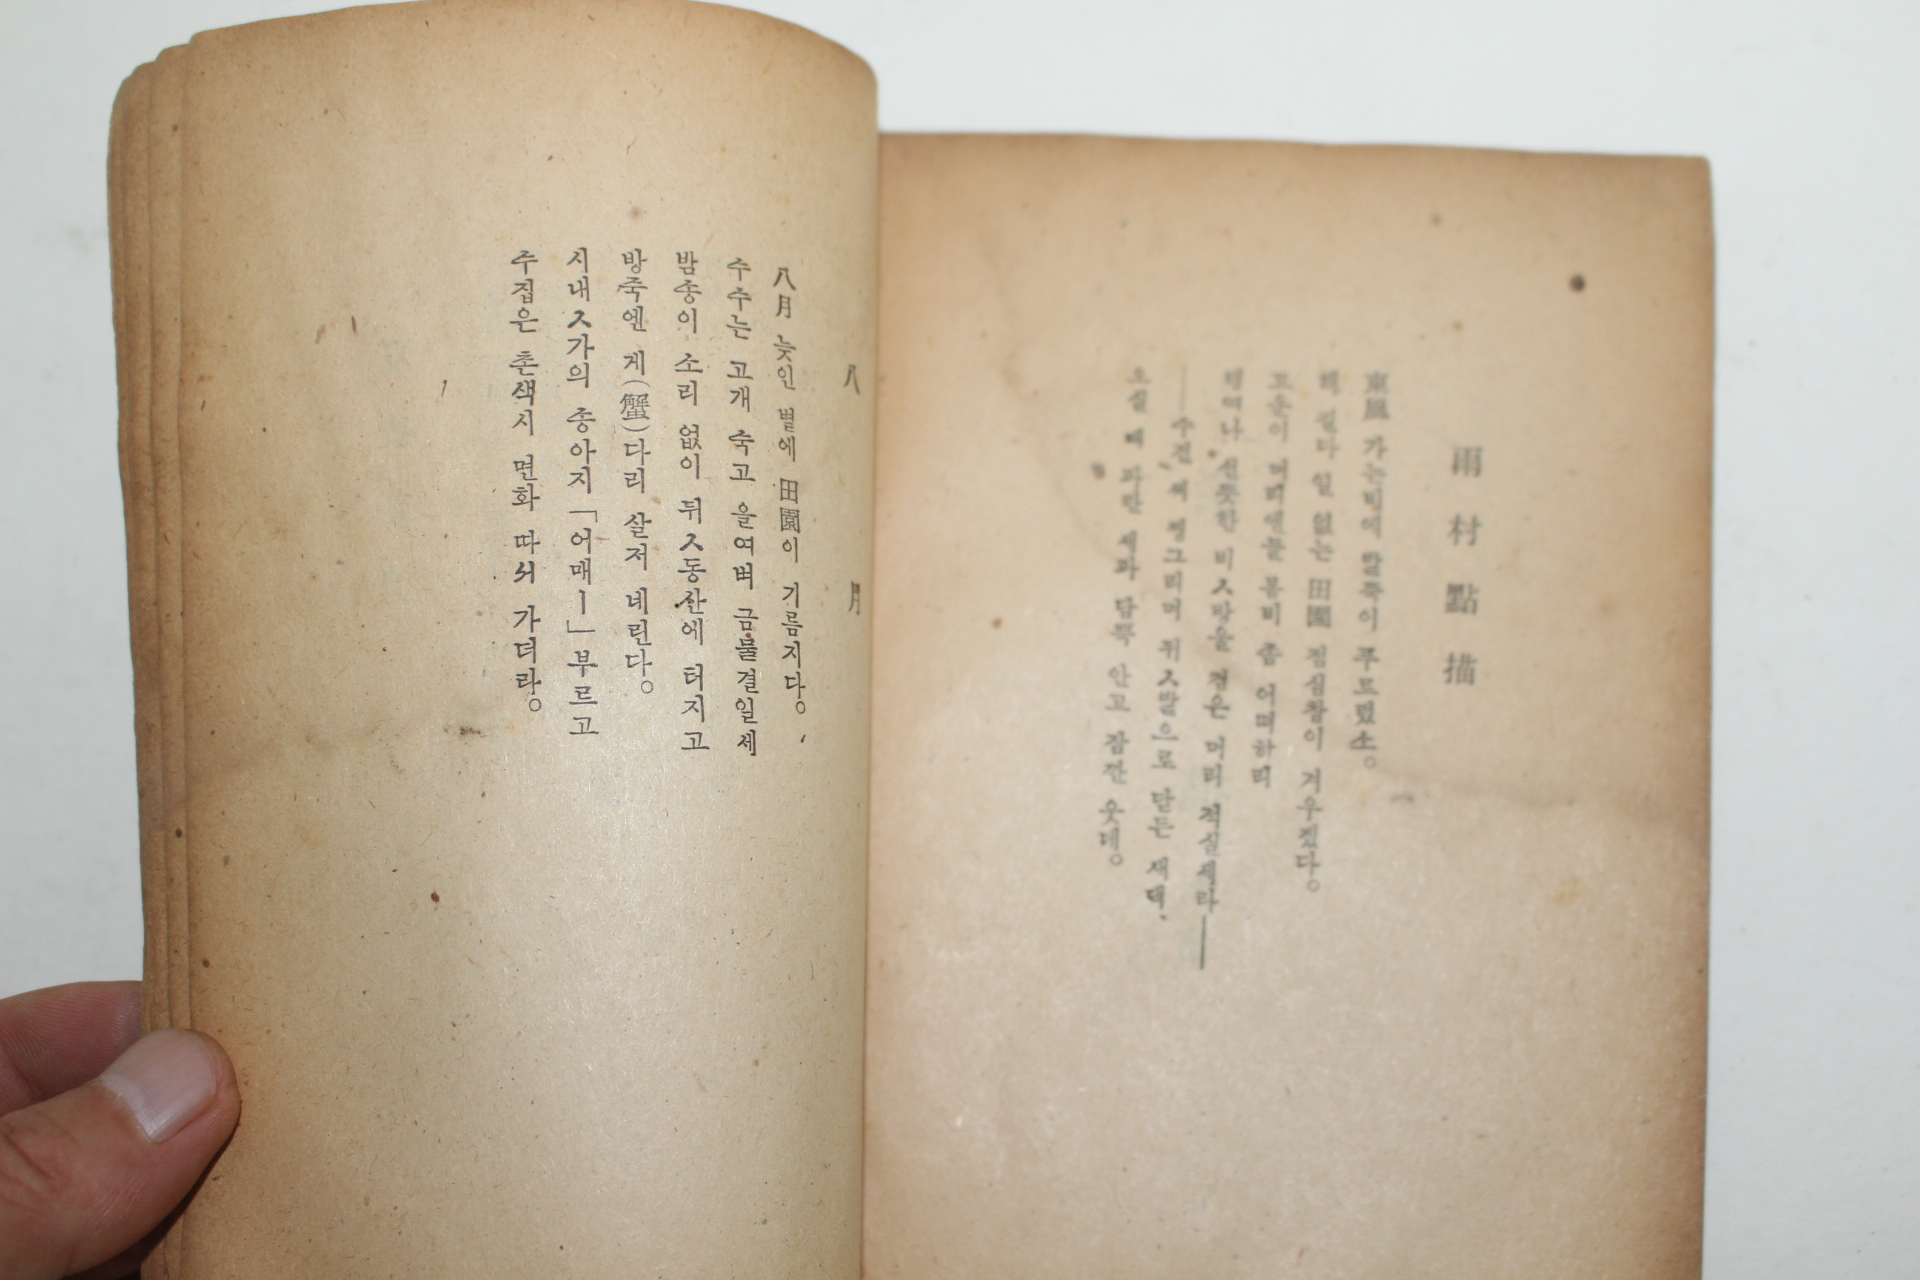 雨村點描
東風 가는비에 푸르렀소。
일 없는 田園 점심참이 겨우겠다。
고운이 머리엔들 봄비 좀 어떠하리
행여나 선뜻한 비ㅅ방울 검은 머리 적실세라——
——수건 써 찡그리며 뒤ㅅ발으로 닫든 새댁、
오실 때 파란 새파 담뿍 안고 잠깐 웃데。
八月
八月 늦인 볕에 田園이 기름지다。
수수는 고개 숙고 올여벼 금물결일세
밤송이 소리 없이 뒤ㅅ동산에 터지고
방죽엔 게(蟹)다리 살저 네린다。
시내ㅅ가의 송아지「어매ㅣ」부르고
수집은 촌색시 면화 따서 가더라。